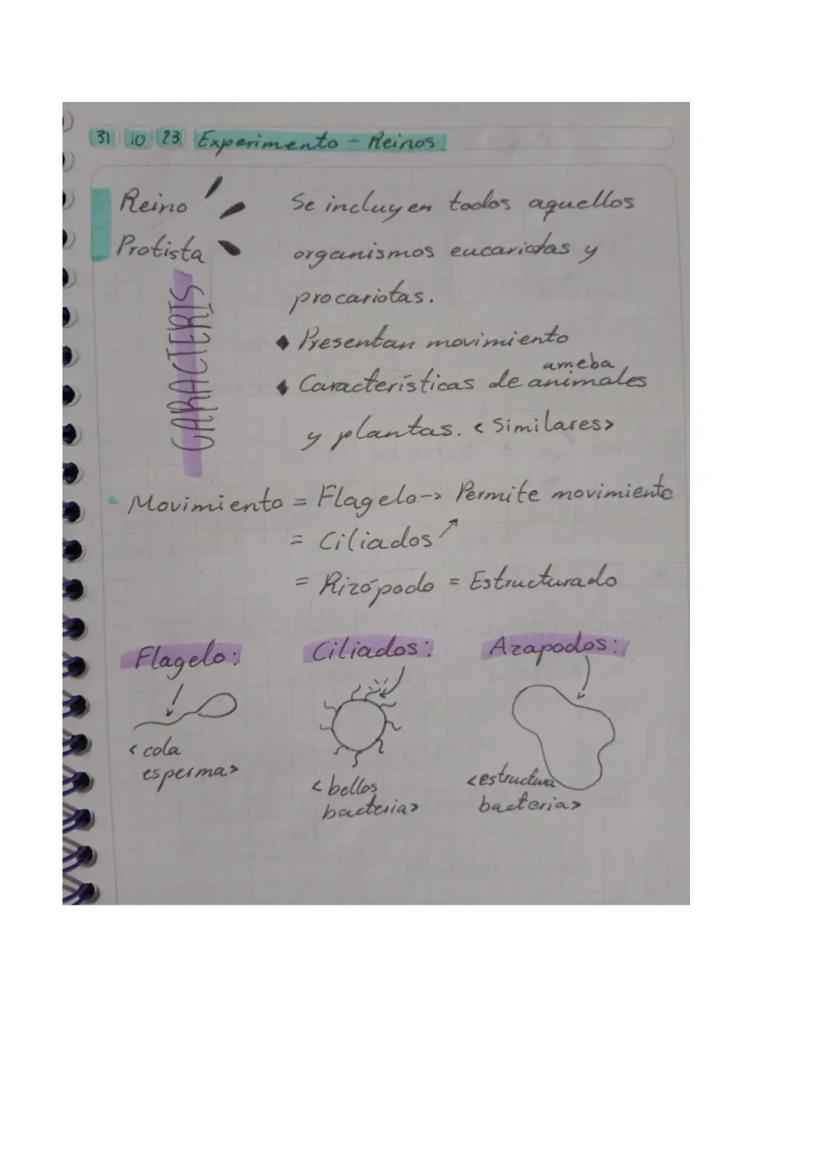 31 10 23 Experimento - Reinos
Reino
Protista
CARACTERIS
Se incluyen todos aquellos
organismos eucariotas y
procariotas.
♦ Presentan movimiento
ameba
♦ Características de animales
y plantas. < Similares>
• Movimiento = Flagelo -> Permite movimiento
= Ciliados ↗
= Rizópodo = Estructurado
Flagelo:
< cola
esperma>
Ciliados:
< bellos
bacteria>
Azapodos:
<estructura
bacteria>